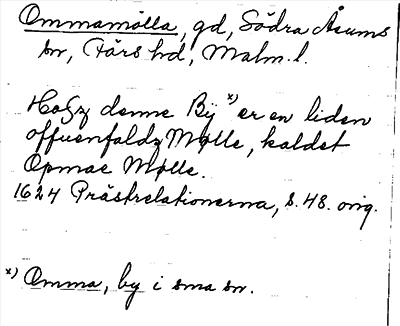 Ommamölla, gd, Södra Åsums
sn, Färs hd, Malm. l.
Hosz denne Bÿ x) er en liden
offuenfaldz Mølle, kaldet
Opmae Mølle.
1624 Prästrelationerna, s. 48. orig.
x) Omma, by i sma sn.